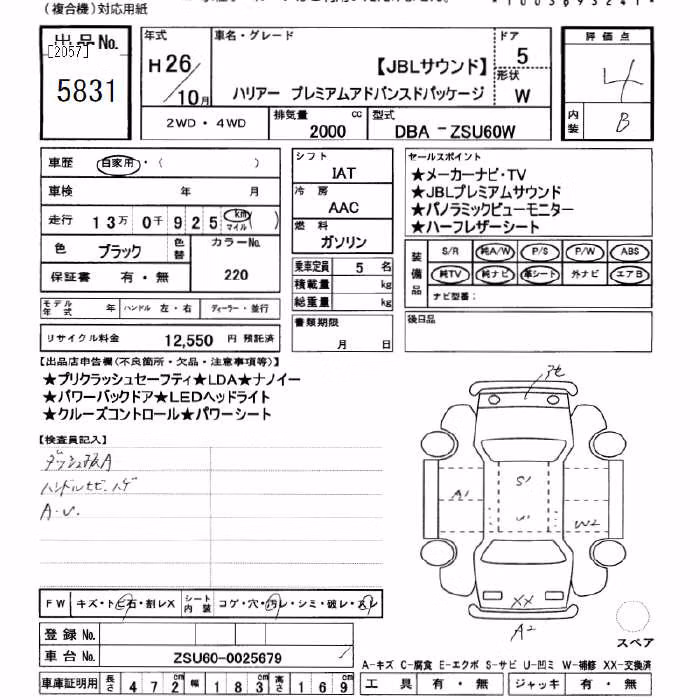 (複合機)対応用紙
出品No.
[2057]
5831
年式
H26/10月
車名・グレード
【JBLサウンド】
ハリアー プレミアムアドバンスドパッケージ
ドア
5
形状
W
評価点
4
内装
B
2WD・4WD
排気量
2000
cc
型式
DBA-ZSU60W
車歴 自家用・( )
車検 年 月
走行 13万 0千 925 km マイル( )
色 ブラック 色替 カラーNo.
220
保証書 有・無
モデル年式 年 ハンドル 左・右 ディーラー・並行
リサイクル料金 12,550 円 預託済
シフト
IAT
冷房
AAC
燃料
ガソリン
乗車定員 5 名
積載量 kg
総重量 kg
書類期限
月 日
セールスポイント
★メーカーナビ・TV
★JBLプレミアムサウンド
★パノラミックビューモニター
★ハーフレザーシート
装備品
S/R 純A/W P/S P/W ABS
純TV 純ナビ 革シート 外ナビ エアB
ナビ型番:
後日品
【出品店申告欄(不良箇所・欠品・注意事項等)】
★プリクラッシュセーフティ★LDA★ナノイー
★パワーバックドア★LEDヘッドライト
★クルーズコントロール★パワーシート
【検査員記入】
ハンドル
A1
S1
U1
W2
XX
A2
スペア
FW キズ・トビ石・割レX シート内装 コゲ・穴・汚レ・シミ・破レ・スレ
登録No.
車台No. ZSU60-0025679
車庫証明用 長さ 472cm 幅 183cm 高さ 169cm
A-キズ C-腐食 E-エクボ S-サビ U-凹ミ W-補修 XX-交換済
工具 有・無 ジャッキ 有・無